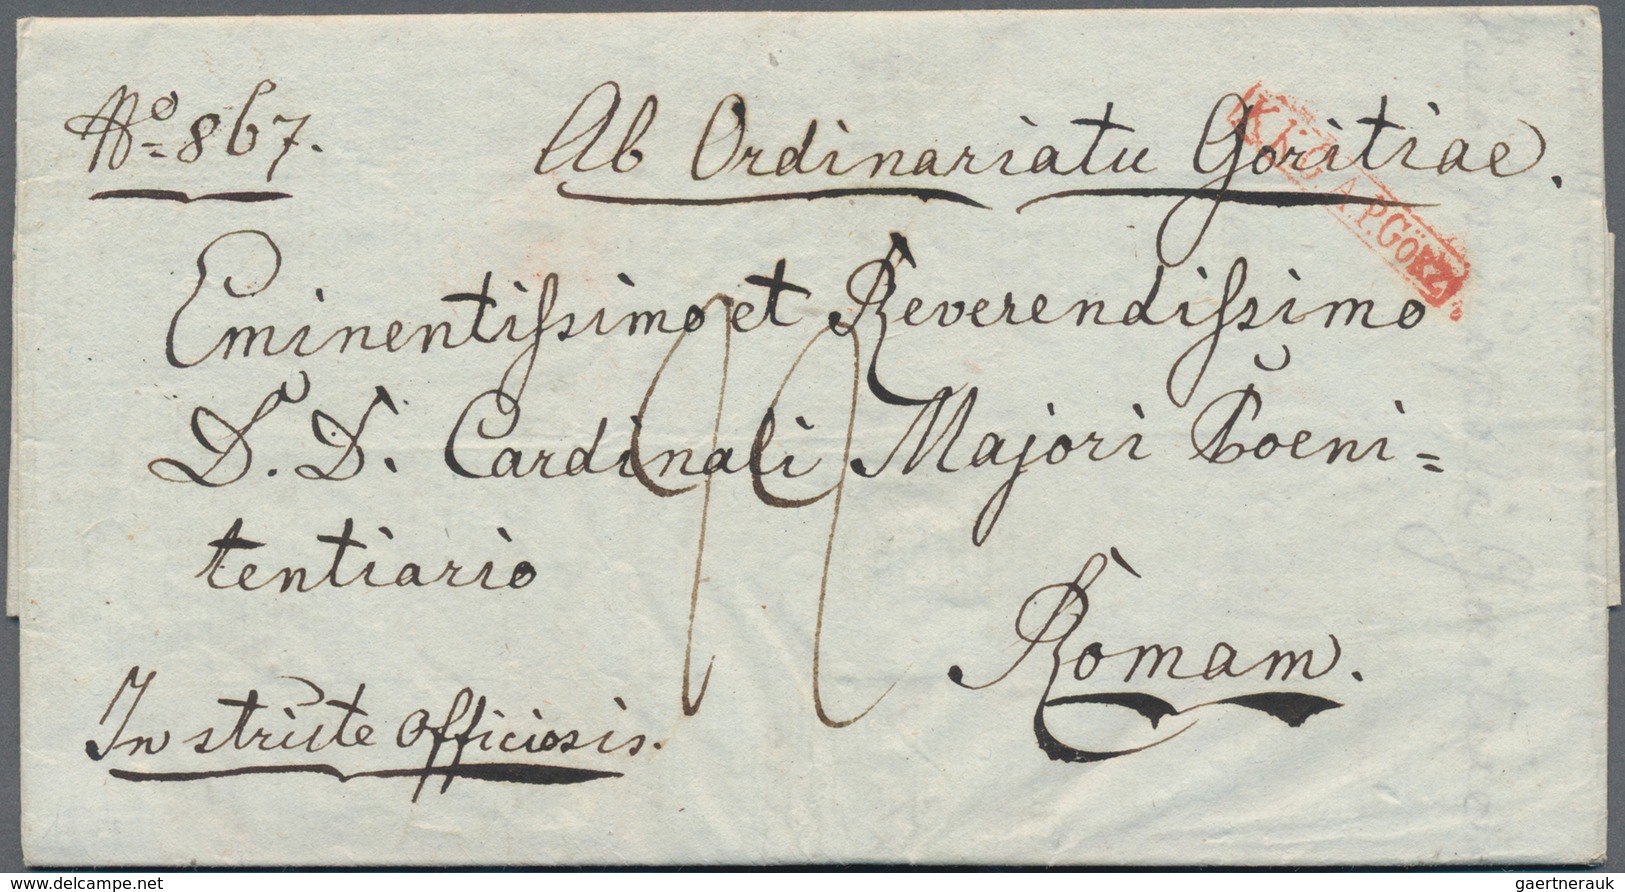 No. 867.
Ab Ordinariatu Goritiae.
A.P. GÖRZ
Eminentissimo et Reverendissimo
D. D. Cardinali Majori Poeni=
tentiario
Romam.
In stricte officiosis.
© www.delcampe.net
gaertnerauk